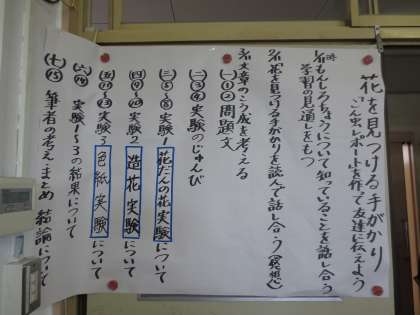 花を見つける手がかり
こん虫レポートを作って友達に伝えよう
もんしろちょうについて知っていることを話し合う
学習の見通しをもつ
「花を見つける手がかり」を読んで話し合う(感想)
文章のこう成を考える
(一)①②問題文
(二)③④実験のじゅんび
(三)⑤~⑧実験1花だんの花実験について
(四)⑨~⑩実験2造花実験について
(五)⑪~⑬実験3色紙実験について
(六)⑭実験1~3の結果について
(七)⑮筆者の考え・まとめ 結論について